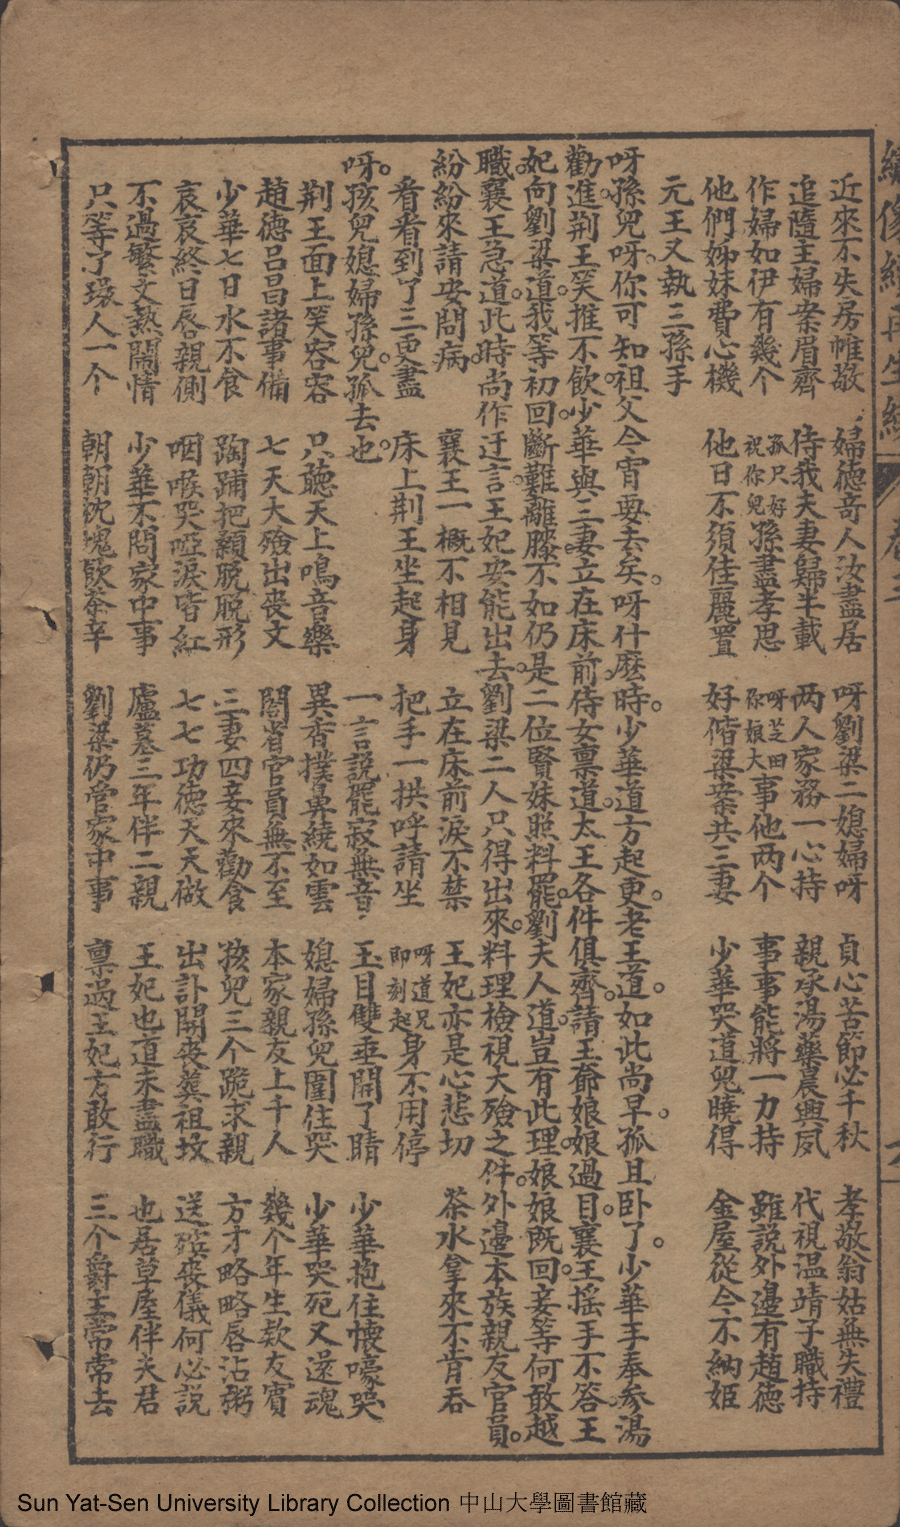 像 再生 卷三
近來不失居帷敬 婦德竒人汝盡居 呀劉梁二媳婦呀 貞心苦節必千秋 孝敬翁姑無失禮
追隨主婦案眉齊 侍我夫妻歸半載 两人家務一心持 親承湯藥晨興夙 代視温靖子職持
作婦如伊有幾个 孤只好祝你兒孫盡孝思 呀芝田你娘大事他两个 事事能將一力持 雖説外邊有趙德
他們姊妹費心機 他日不須佳麗置 好偕梁案共三妻 少華哭道兒曉得 金屋從今不納姬
元王又執三孫手
呀孫兒呀。你可知。祖父今宵要去矣。呀什麽時。少華道方起更。老王道。如此尚早。孤且卧了。少華手奉参湯
勸進。荆王笑推不飲。少華與三妻立在床前。侍女禀道。太王各件俱齊。請王爺娘娘過目。襄王揺手不答。王
妃向劉梁道。我等初回。斷難離膝。不如仍是二位賢妹照料罷。劉夫人道。豈有此理。娘娘既回。妾等何敢越
職。襄王急道。此時尚作迂言。王妃安能出去。劉梁二人只得出來。料理檢視大殮之件。外邊本族親友官員。
紛紛來請安問病。 襄王一概不相見 立在床前淚不禁 王妃亦是心悲切 茶水拿來不肯吞
看看到了三更盡 床上荆王坐起身 把手一拱呼請坐 呀道兄即刻起身不用停
呀。孩兒媳婦孫兒。孤去也。 一言説罷寂無音 玉目雙垂開了睛 少華抱住懐嚎哭
荆王面上笑容容 只聽天上鳴音樂 異香撲鼻繞如雲 媳婦孫兒圍住哭 少華哭死又還魂
趙德吕昌諸事備 七天大殮出丧文 閤省官員無不至 本家親友上千人 幾个年生欵友賓
少華七日水不食 蹈踊把顙脱脱形 三妻四妾來勸食 孩兒三个跪求親 方才略略唇沾粥
哀哀終日唇親側 咽喉哭啞淚皆紅 七七功德天天做 出訃開丧奠祖坟 送殯丧儀何必説
不過繁文熱閙情 少華不問家中事 廬墓三年伴二親 王妃也道未盡職 也居草屋伴夫君
只等了環人一个 朝朝沈塊飲茶辛 劉梁仍管家中事 禀過王妃方敢行 三个爵王常常去
Sun Yat-Sen University Library Collection 中山大學圖書館藏